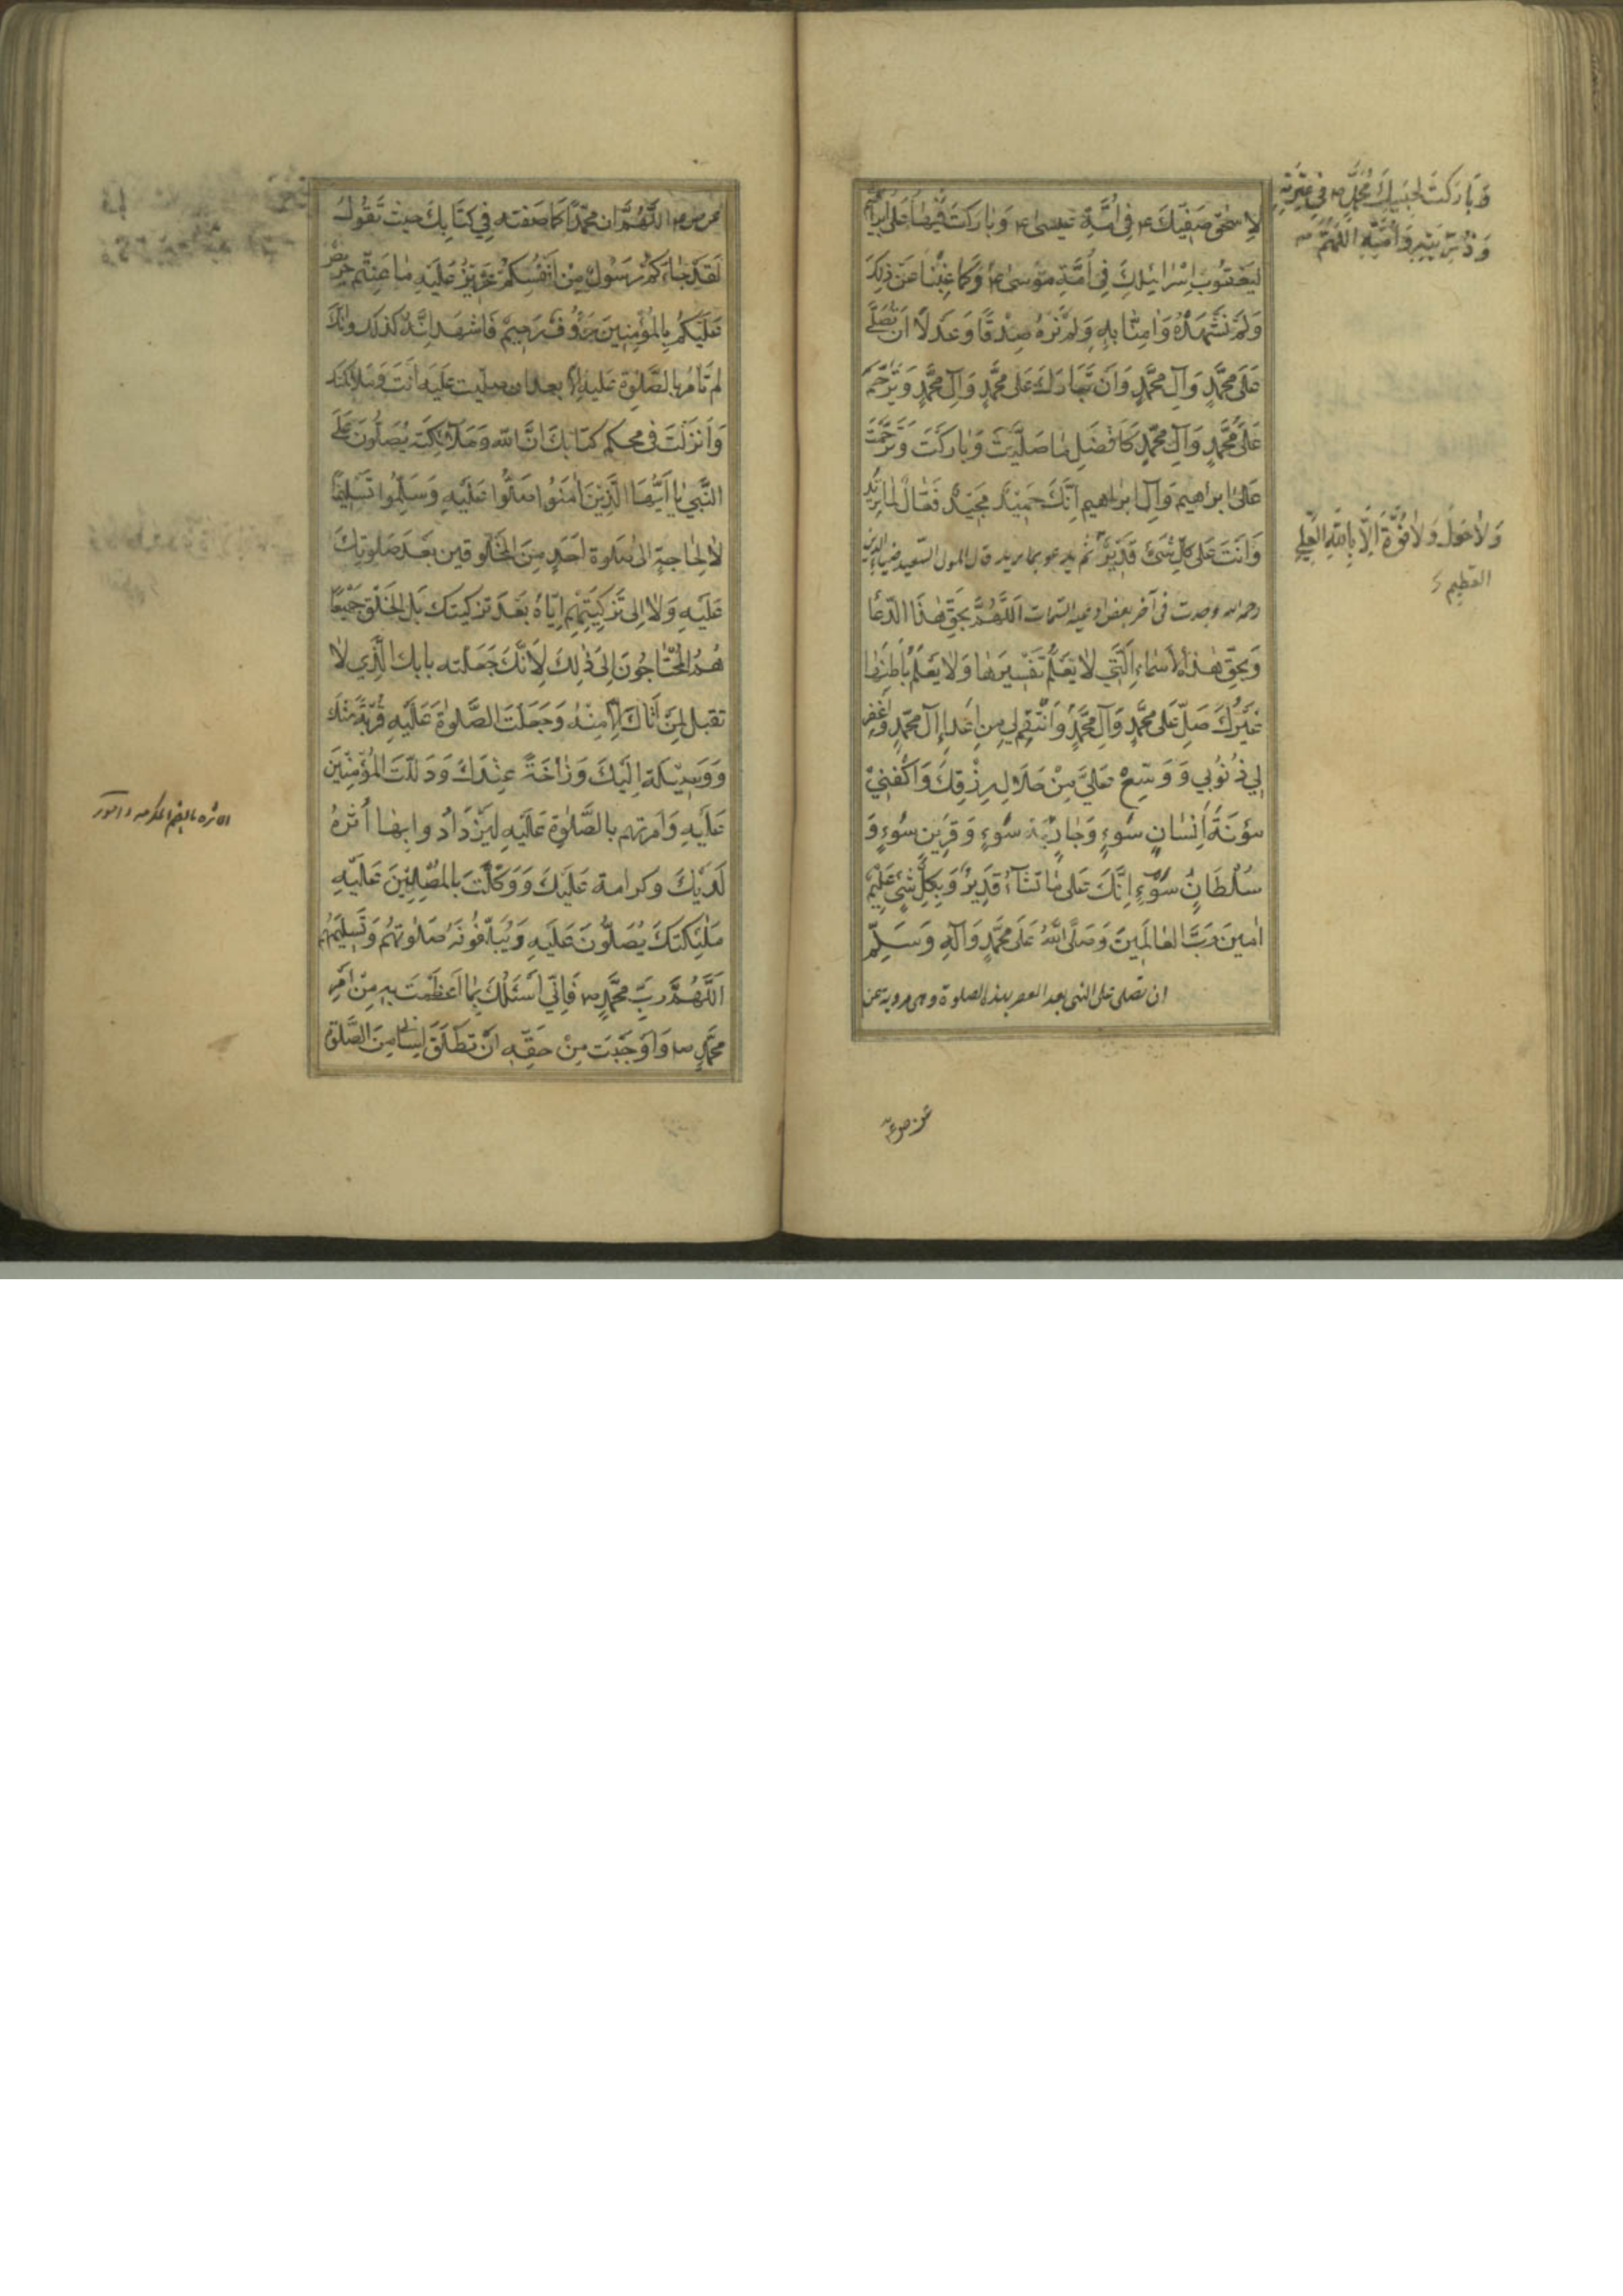 لاسحق صفيك ۴ في امة عيسى ۴ وباركت
ليعقوب اسرائيلك في امة موسى ۴ وكما غبنا عن ذلك
ولم نشهده وامنا به ولم نره صدقا وعدلا ان تصلي
على محمد وآل محمد وان تبارك على محمد وآل محمد وترحم
على محمد وآل محمد كافضل ما صليت وباركت وترحمت
على ابراهيم وآل ابراهيم انك حميد مجيد فعال لما تريد
وانت على كل شئ قدير ثم يدعو بما يريد قال المولى السعيد ضياء الدين
رحمه الله وجدت في آخر بعض ادعية السمات اللهم بحق هذا الدعا
وبحق هذه الاسماء التي لا تعلم تفسيرها ولا يعلم باطنها
غيرك صل على محمد وآل محمد وانتقم لي من اعداء آل محمد واغفر
لي ذنوبي ووسع علي من حلال رزقك واكفني
مؤنة انسان سوء وجار سوء وقرين سوء و
سلطان سوء انك على ما تشاء قدير وبكل شئ عليم
امين رب العالمين وصلى الله على محمد وآله وسلم
ان تصلى على النبي بعد العصر بهذه الصلوة وهى مروية عن
وباركت لحبيبك محمد ص في عترته
وذريته وامته اللهم
ولا حول ولا قوة الا بالله العلي
العظيم
اللهم ان محمدا كما صفته في كتابك حيث تقول
لقد جاءكم رسول من انفسكم عزيز عليه ما عنتم حريص
عليكم بالمؤمنين رؤف رحيم فاشهد انه كذلك وانك
لم تامر بالصلوة عليه الا بعد ان صليت عليه انت وملائكتك
وانزلت في محكم كتابك ان الله وملائكته يصلون على
النبي يا ايها الذين امنوا صلوا عليه وسلموا تسليما
لا لحاجة الى صلوة احد من المخلوقين بعد صلوتك
عليه ولا الى تزكيتهم اياه بعد تزكيتك بل الخلق جميعا
هم المحتاجون الى ذلك لانك جعلته بابك الذي لا
تقبل لمن اتاك الا منه وجعلت الصلوة عليه قربة منك
ووسيلة اليك وزلفة عندك ودللت المؤمنين
عليه وامرتهم بالصلوة عليه ليزدادوا بها أثرة
لديك وكرامة عليك ووكلت بالمصلين عليه
ملئكتك يصلون عليه ويبلغونه صلوتهم وتسليمهم
اللهم رب محمد ص فاني اسئلك بما اعظمت به من امر
محمد ص واوجبت من حقه ان تطلق لساني من الصلوة